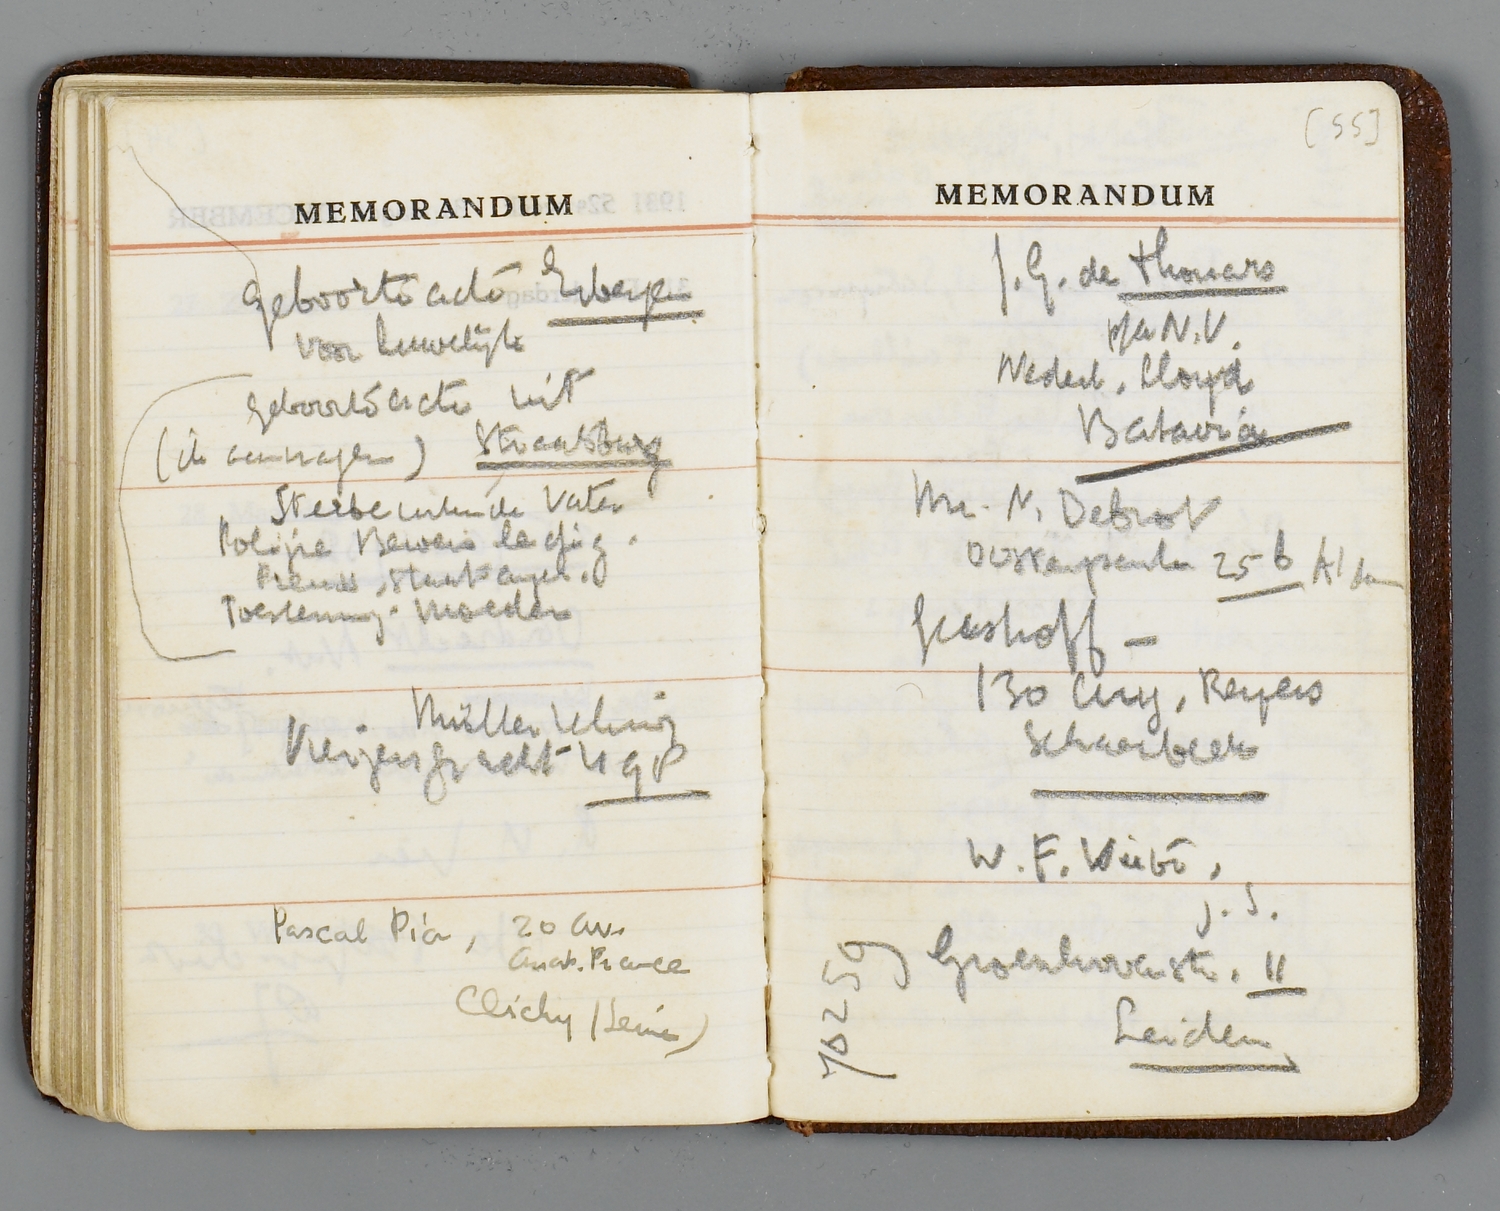 MEMORANDUM
Geboorte acte
voor huwelijk
Geboorte acte uit
(te aanvragen) Straatsburg
Sterbeurkunde Vater
Polizie
Preuss. Staatsanger.
Toestemming Moeder
Müller Lehning
Keizersgracht
Pascal Pia, 20 av.
Anat. France
Clichy (Seine)
[55]
MEMORANDUM
J. G. de Thouars
p/a N.V.
Nederl. Lloyd
Batavia
Mr. N. Debrot
25 b A'dam
Greshoff —
130 Aug. Reyers
Schaerbeek
W. F. Wiebe,
J. S.
11
Leiden